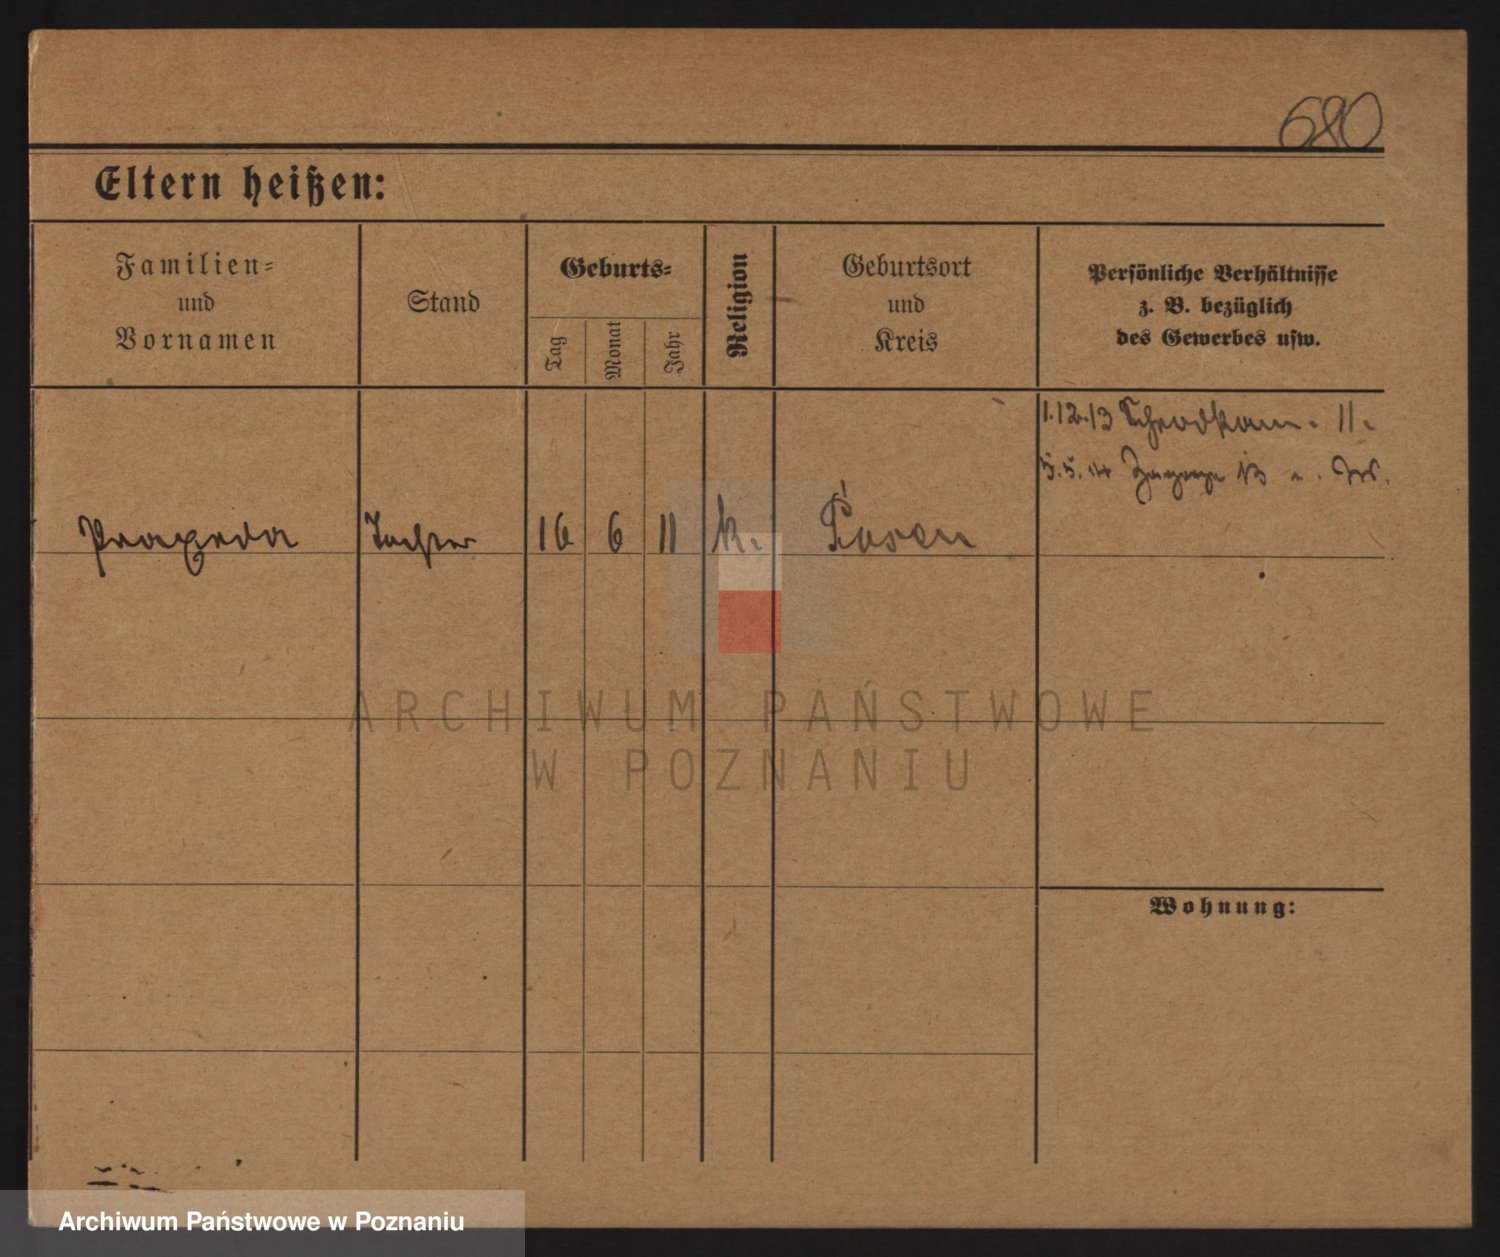 680
Eltern heißen:
Familien-
und
Vornamen
Stand
Geburts-
Tag
Monat
Jahr
Religion
Geburtsort
und
Kreis
Persönliche Verhältnisse
z. B. bezüglich
des Gewerbes usw.
1.12.13 11.
5.5.14
Praxeda Tochter 16 6 11 k. Posen
Wohnung:
ARCHIWUM PAŃSTWOWE
W POZNANIU
Archiwum Państwowe w Poznaniu